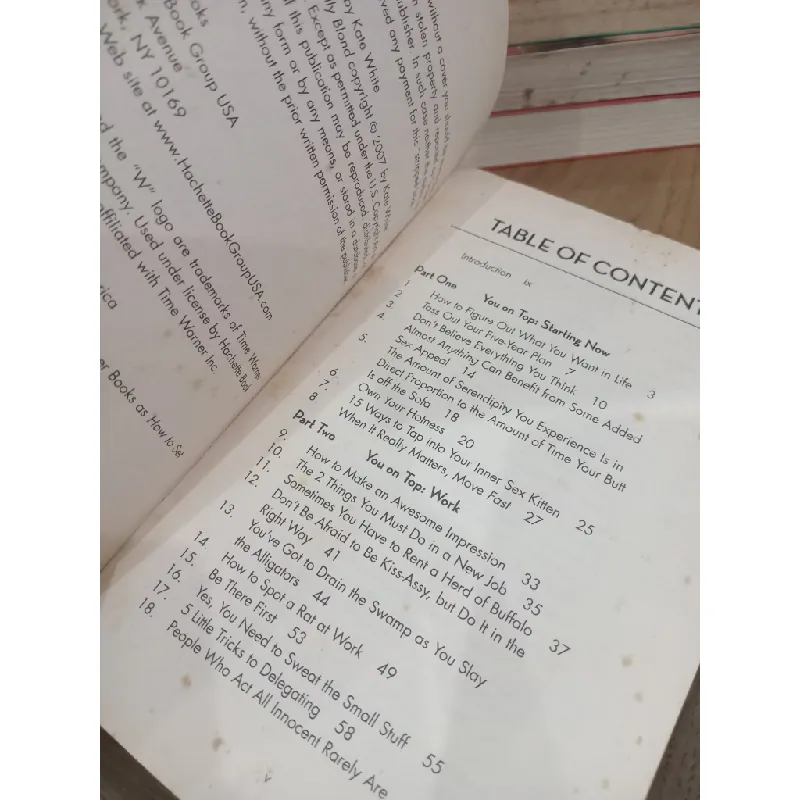 ooks
Book Group USA
Avenue
rk, NY 10169
Web site at www.HachetteBookGroupUSA.com
d the "W" logo are trademarks of Time Warner
mpany. Used under license by Hachette Book
affiliated with Time Warner Inc.
rica
er Books as How to Set
by Kate White
lly Blond copyright © 2007 by Kate White
Except as permitted under the U.S. Copyright
f this publication may be reproduced, distributed,
any form or by any means, or stored in a database
m, without the prior written permission of the publisher
without a cover you should be
n stolen property and reported
publisher. In such case neither the
ved any payment for this "stripped
TABLE OF CONTENT
Introduction ix
Part One You on Top: Starting Now
1. How to Figure Out What You Want in Life 3
2. Toss Out Your Five-Year Plan 7
3. Don't Believe Everything You Think 10
4. Almost Anything Can Benefit from Some Added
Sex Appeal 14
5. The Amount of Serendipity You Experience Is in
Direct Proportion to the Amount of Time Your Butt
Is off the Sofa 18
6. Own Your Hotness 20
7. 15 Ways to Tap into Your Inner Sex Kitten 25
8 When It Really Matters, Move Fast 27
Part Two You on Top: Work
9. How to Make an Awesome Impression 33
10. The 2 Things You Must Do in a New Job 35
11. Sometimes You Have to Rent a Herd of Buffalo 37
12. Don't Be Afraid to Be Kiss-Assy, but Do It in the
Right Way 41
13. You've Got to Drain the Swamp as You Slay
the Alligators 44
14. How to Spot a Rat at Work 49
15. Be There First 53
16. Yes, You Need to Sweat the Small Stuff 55
17. 5 Little Tricks to Delegating 58
18. People Who Act All Innocent Rarely Are
v